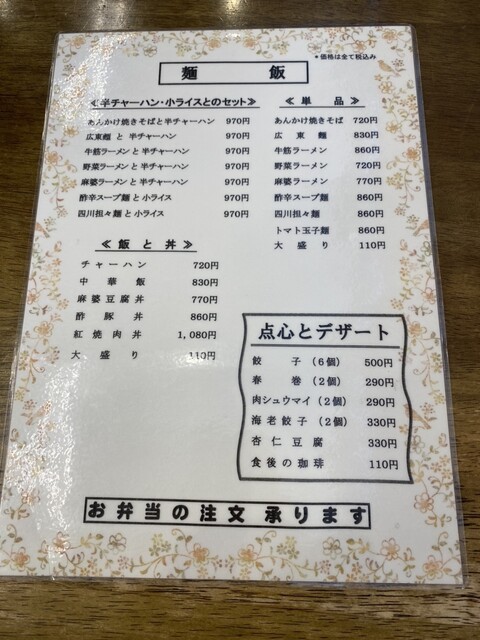 ＊価格は全て税込み
麺 飯
≪半チャーハン・小ライスとのセット≫
あんかけ焼きそばと半チャーハン 970円
広東麺 と 半チャーハン 970円
牛筋ラーメンと半チャーハン 970円
野菜ラーメンと半チャーハン 970円
麻婆ラーメンと半チャーハン 970円
酢辛スープ麺と小ライス 970円
四川担々麺と小ライス 970円
≪ 単 品 ≫
あんかけ焼きそば 720円
広 東 麺 830円
牛筋ラーメン 860円
野菜ラーメン 720円
麻婆ラーメン 770円
酢辛スープ麺 860円
四川担々麺 860円
トマト玉子麺 860円
大 盛 り 110円
≪ 飯 と 丼 ≫
チャーハン 720円
中 華 飯 830円
麻婆豆腐丼 770円
酢 豚 丼 860円
紅焼肉丼 1,080円
大 盛 り 110円
点心とデザート
餃 子 (6個) 500円
春 巻 (2個) 290円
肉シュウマイ(2個) 290円
海老餃子 (2個) 330円
杏仁豆腐 330円
食後の珈琲 110円
お弁当の注文承ります